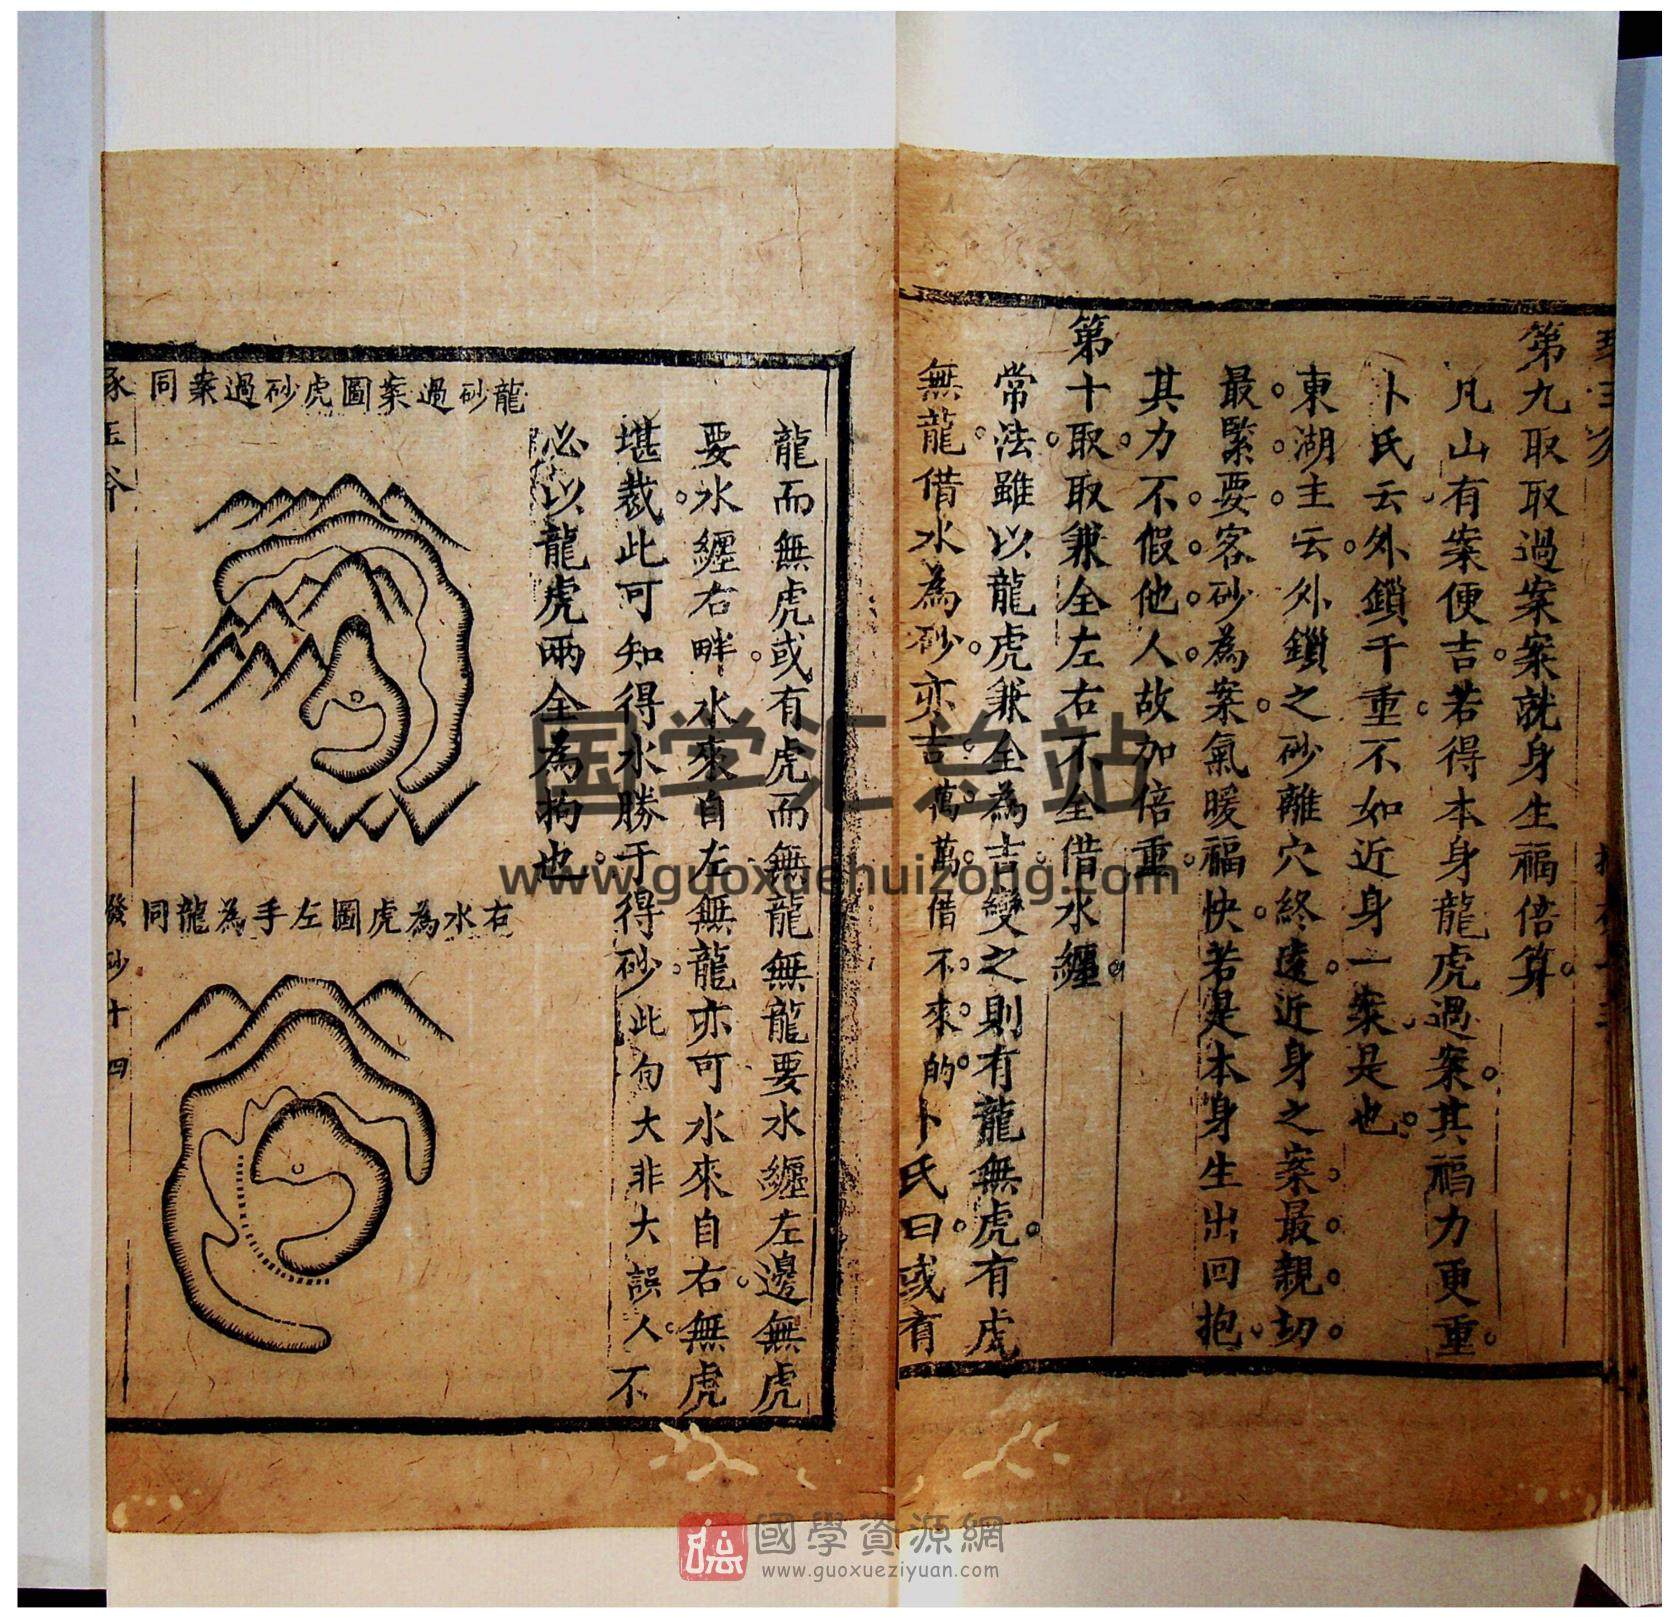 第九取取過案案就身生福倍算
凡山有案便吉若得本身龍虎過案其福力更重
卜氏云外鎖千重不如近身一案是也
東湖主云外鎖之砂離穴終遠近身之案最親切
最緊要客砂為案氣暖福快若是本身生出回抱
其力不假他人故加倍重
第十取取兼全左右不全借水纏
常法雖以龍虎兼全為吉變之則有龍無虎有虎
無龍借水為砂亦吉萬萬借不來的卜氏曰或有
龍而無虎或有虎而無龍無龍要水纏左邊無虎
要水纏右畔水來自左無龍亦可水來自右無虎
堪裁此可知得水勝于得砂此句大非大誤人不
必以龍虎兩全為拘也
龍砂過案圖虎砂過案同
右水為虎圖左手為龍同
琢玉斧
發砂十四
国学汇总站
www.guoxuehuizong.com
國學資源網
www.guoxueziyuan.com